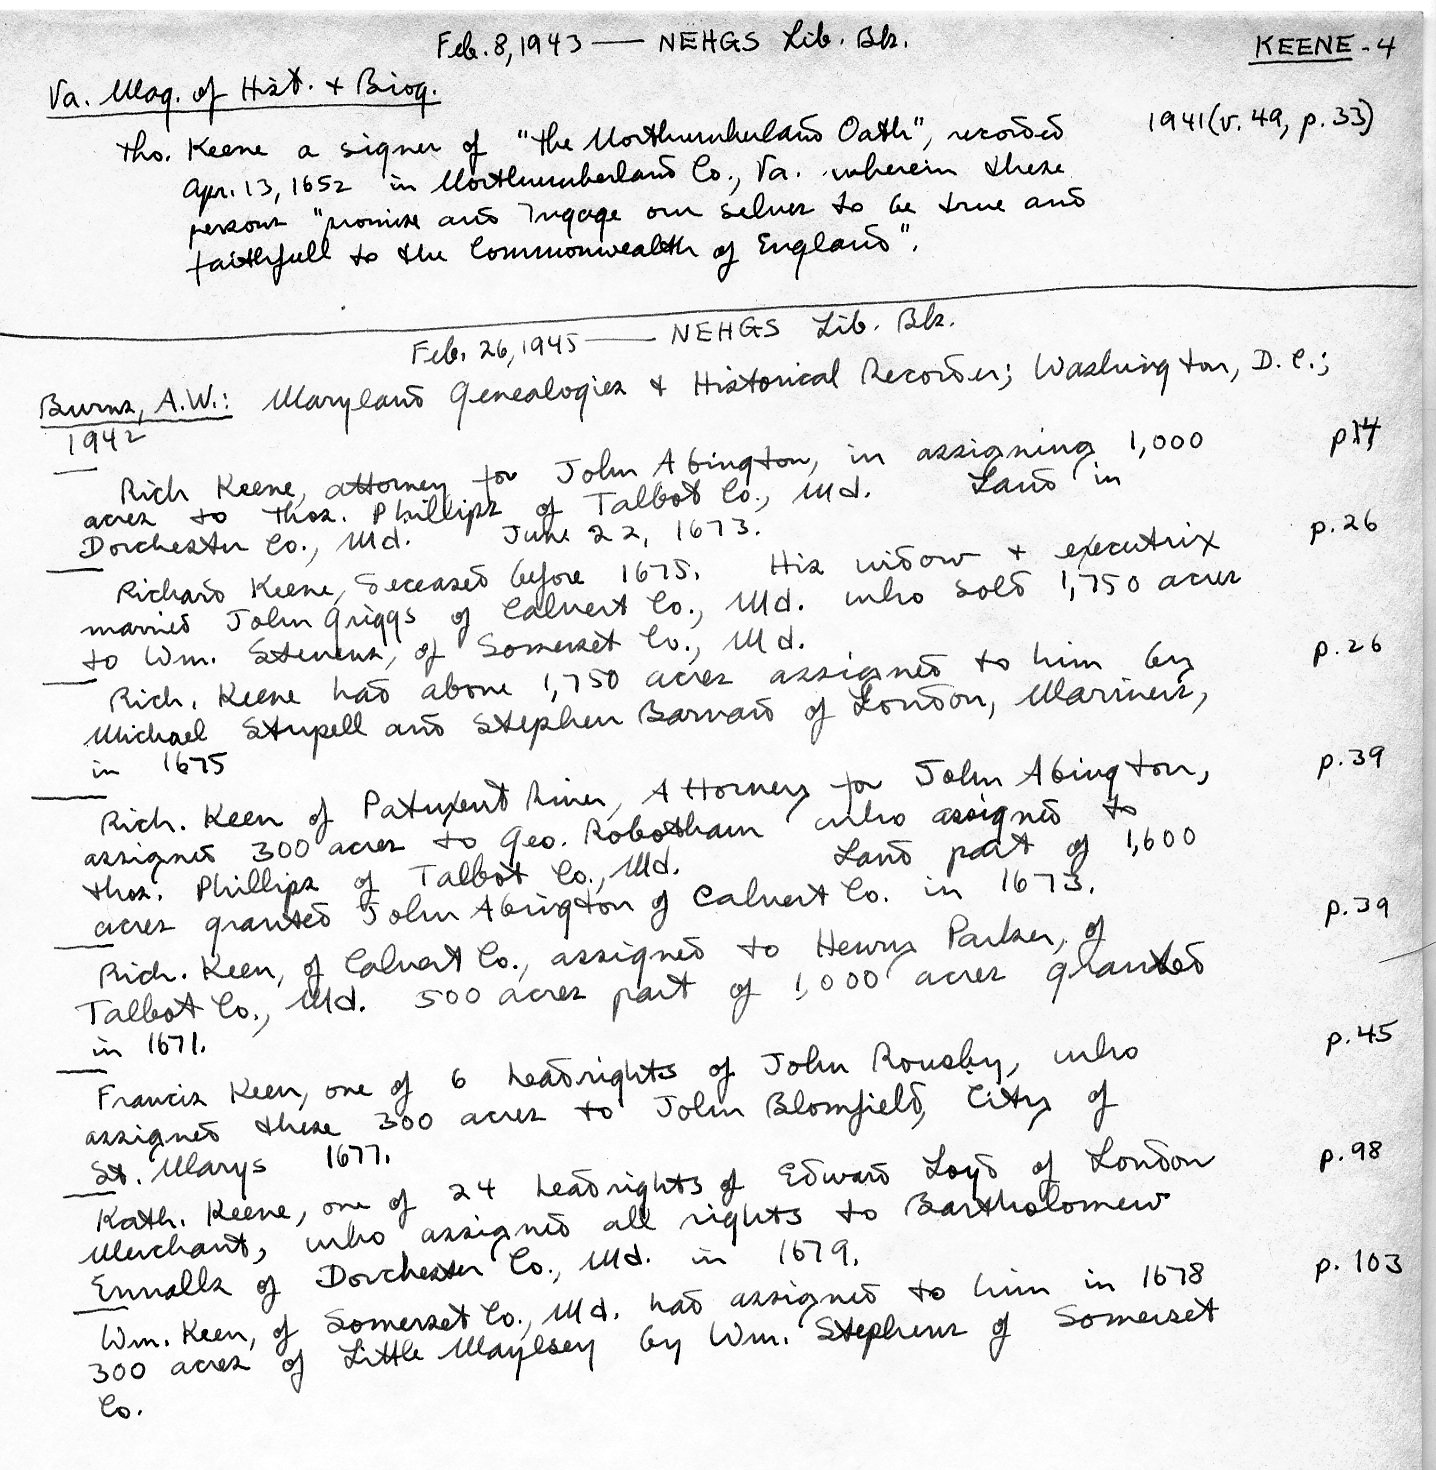 Feb. 8, 1943 — NEHGS Lib. Bk.
KEENE - 4
Va. Mag. of Hist. + Biog.
Tho. Keene a signer of "the Northumberland Oath", recorded 1941 (v. 49, p. 33)
Apr. 13, 1652 in Northumberland Co., Va. wherein these
persons "promise and Ingage our selves to be true and
faithfull to the Commonwealth of England".
Feb. 26, 1945 — NEHGS Lib. Bk.
Burns, A.W.: Maryland Genealogies & Historical Recorder; Washington, D.C.;
1942
Rich Keene, attorney for John Abington, in assigning 1,000 p14
acres to Thos. Phillips of Talbot Co., Md. Land in
Dorchester Co., Md. June 22, 1673.
Richard Keene, deceased before 1675. His widow + executrix p. 26
married John Griggs of Calvert Co., Md. who sold 1,750 acres
to Wm. Stevens, of Somerset Co., Md.
Rich. Keene had above 1,750 acres assigned to him by p. 26
Michael Stupell and Stephen Barnard of London, Mariners,
in 1675
Rich. Keen of Patuxent River, Attorney for John Abington, p. 39
assigned 300 acres to Geo. Robotham who assigned to
Thos. Phillips of Talbot Co., Md. Land part of 1,600
acres granted John Abington of Calvert Co. in 1673.
Rich. Keen, of Calvert Co., assigned to Henry Parker, of p. 39
Talbot Co., Md. 500 acres part of 1,000 acres granted
in 1671.
Francis Keen, one of 6 headrights of John Rousby, who p. 45
assigned these 300 acres to John Blomfield, City of
St. Marys 1677.
Kath. Keene, one of 24 headrights of Edward Loyd of London p. 98
Merchant, who assigned all rights to Bartholomew
Ennalls of Dorchester Co., Md. in 1679.
Wm. Keen, of Somerset Co., Md. had assigned to him in 1678 p. 103
300 acres of Little Maylsey by Wm. Stephens of Somerset
Co.